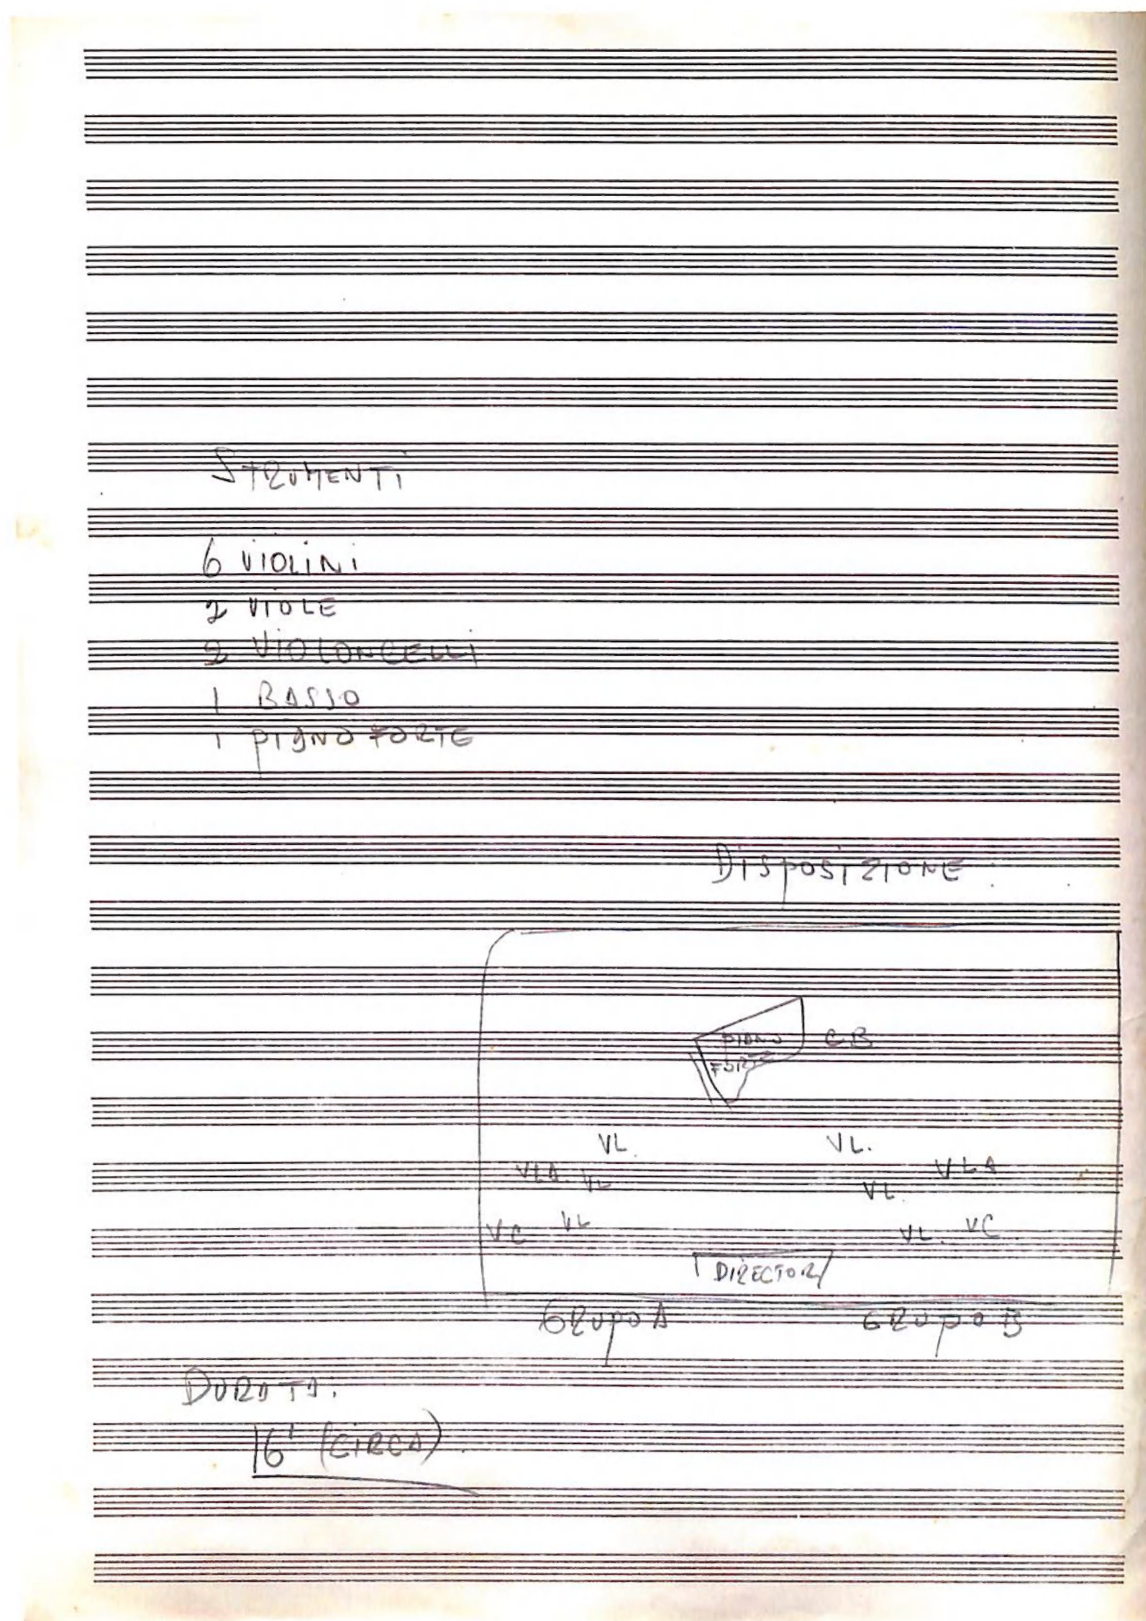 STRUMENTI
6 VIOLINI
2 VIOLE
2 VIOLONCELLI
1 BASSO
1 PIANO FORTE
DISPOSIZIONE
PIANO C B
FORTE
VL. VL.
VLA. VL VL. VLA
VC VL VL. VC
DIRECTOR
GRUPO A GRUPO B
DURATA:
16' (CIRCA)